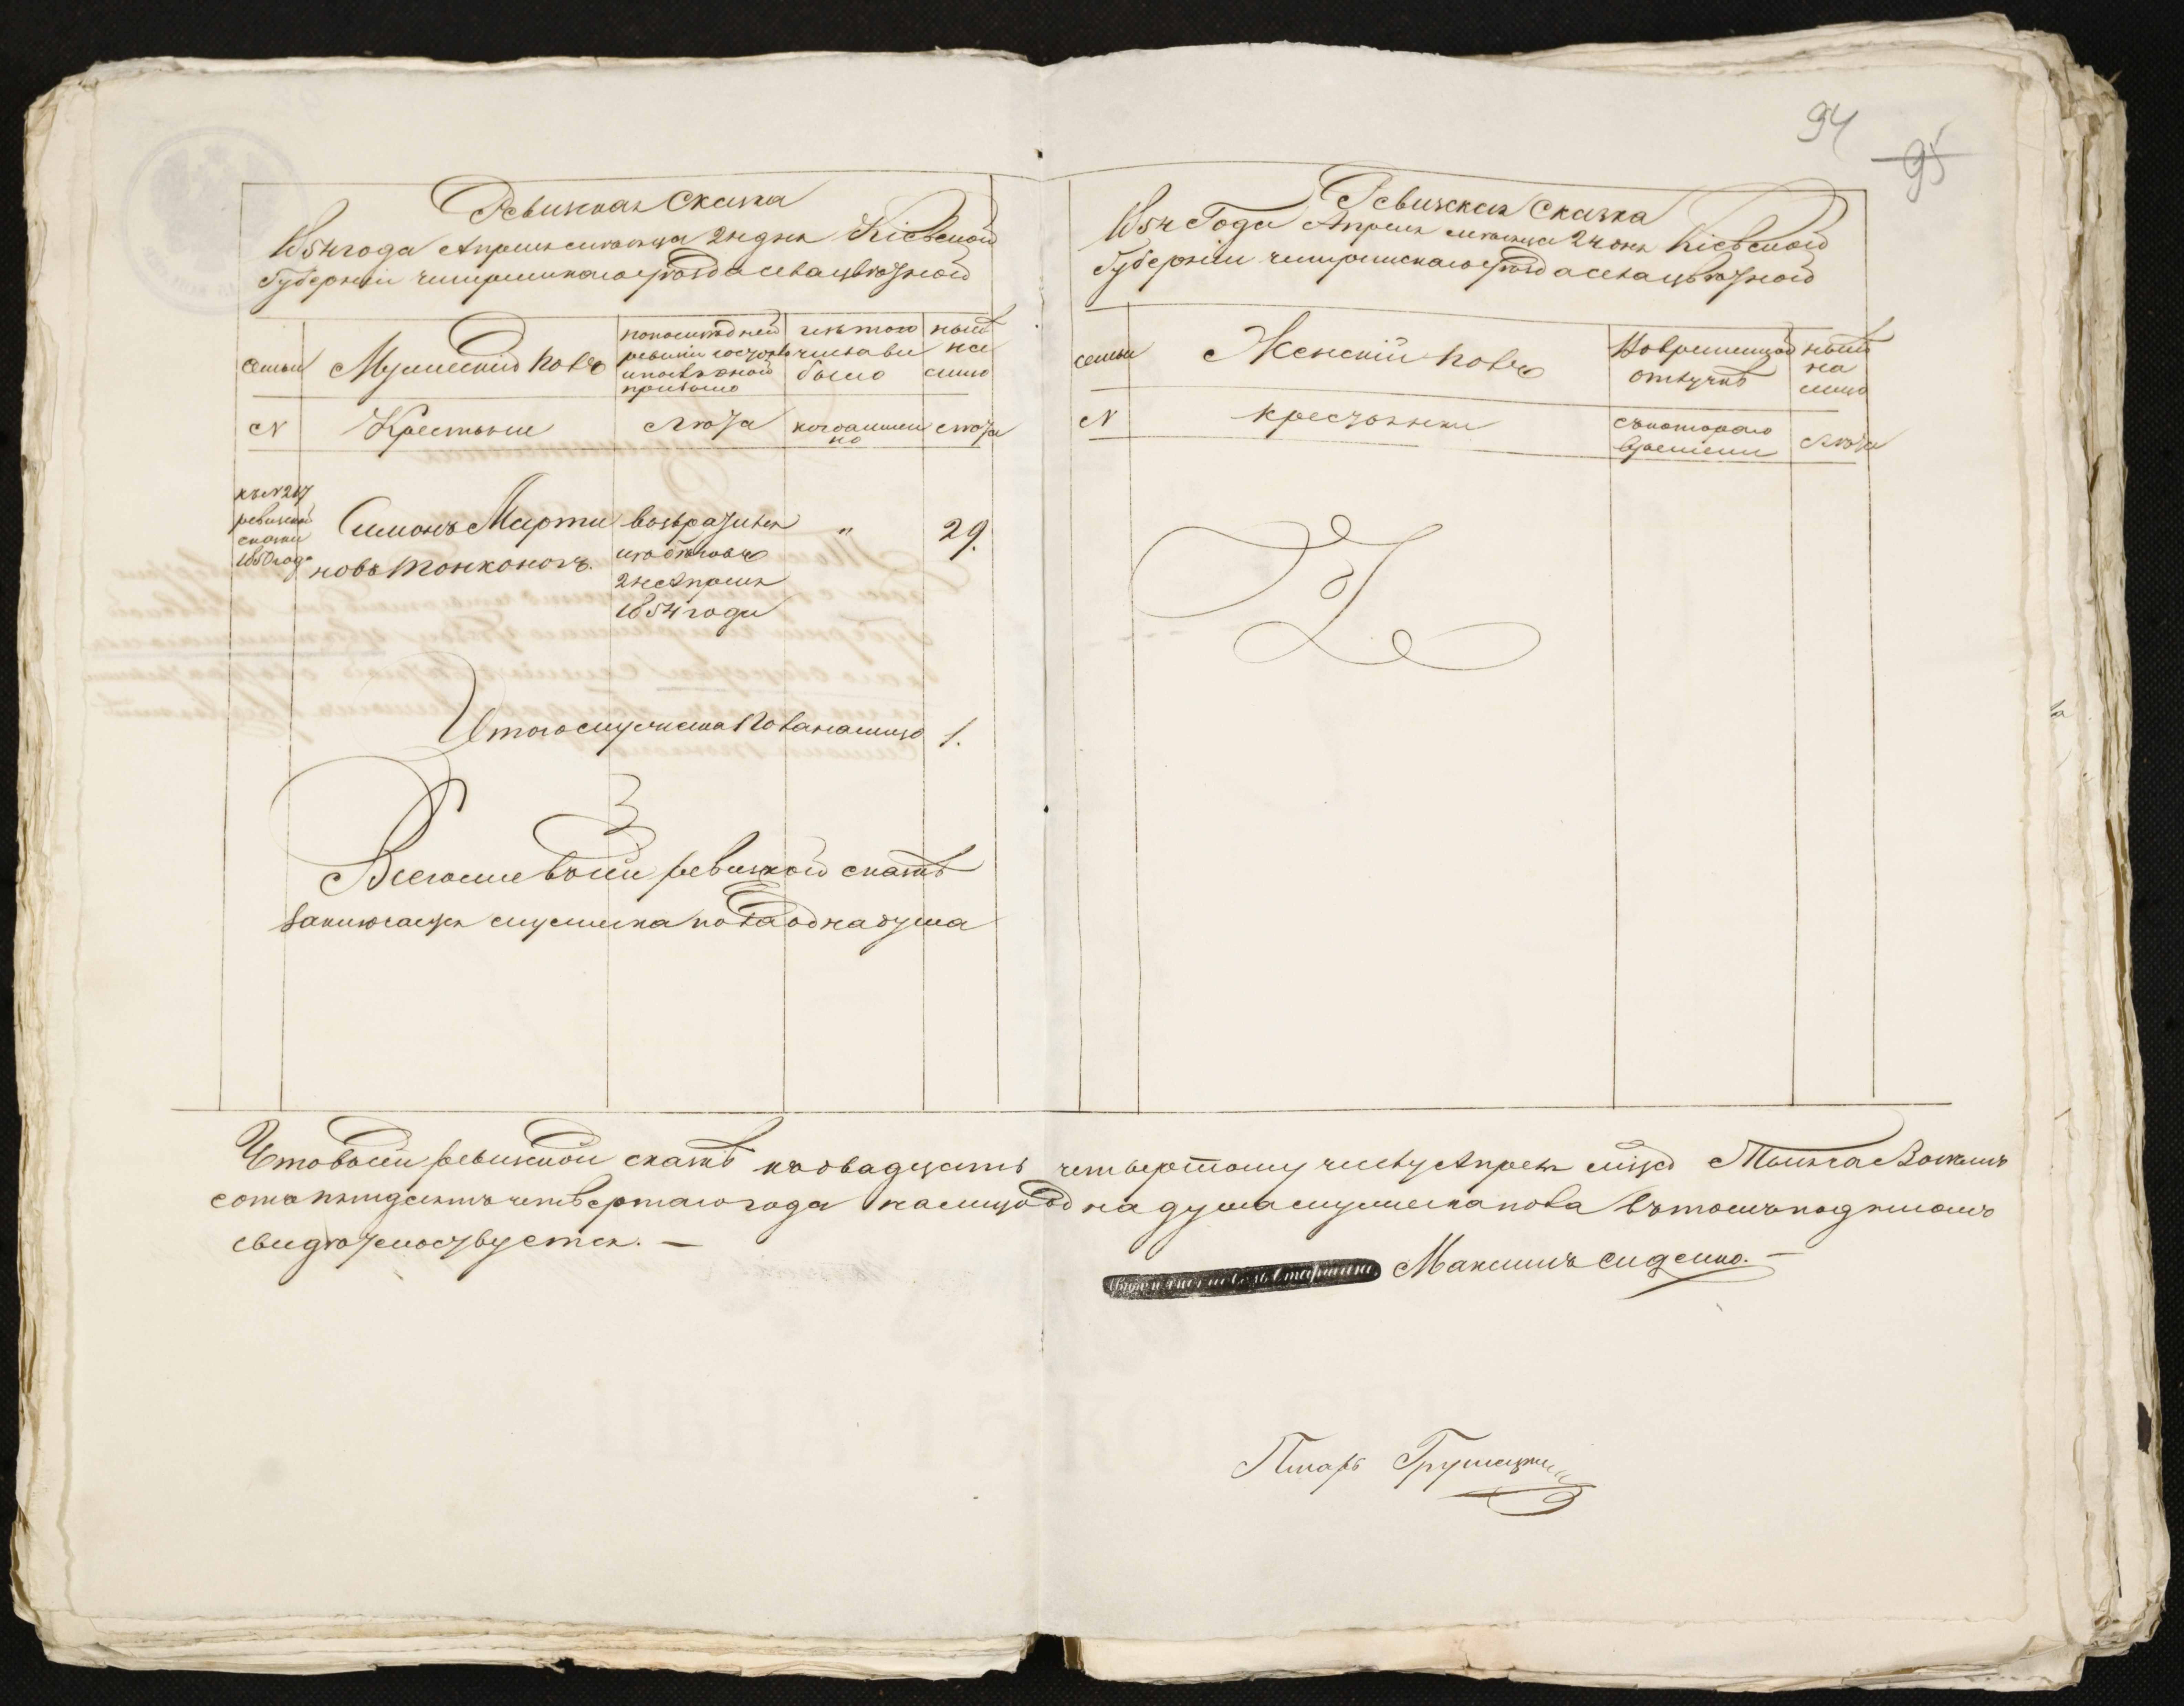 94
95
Ревизкая Сказка
1854 года Апреля месяца 24 дня Кіевской
Губерніи чигиринскаго уезда села цветной
семьи
Мужескій полъ
по последней
ревизіи состояло
и после оной
прибыло
изъ того
числа вы
было
ныне
на
лицо
N
Крестьяне
Лета
когда именно
Лета
къ N 217
ревизской
сказки
1850 года
Симонъ Марти
новъ Тонконогъ.
возвратился
изъ беговъ
24 Апреля
1854 года
"
29.
Итого мужеска пола на лицо 1.
Всего же въ сей ревизкой сказкѣ
заключается мужеска пола одна душа
Ревизкая Сказка
1854 Года Апреля месяца 24 дня Кіевской
Губерніи чигиринскаго уезда села цветной
семьи
Женскій полъ
Во временной
отлучкѣ
ныне
на
лицо
N
крестьянки
съ котораго
времени
Лета
Что въ сей ревизкой сказкѣ къ двадцать четвертому числу Апреля мѣца Тысяча Восемь
сотъ пятдесятъ четвертаго года на лицо одна душа мужеска пола въ томъ подписомъ
свидетельствуется. —
Максимъ Сиденко. —
Писарь